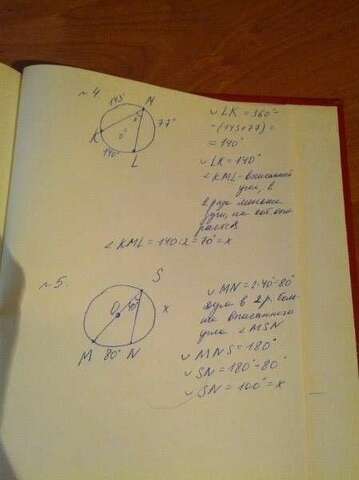 №4.
143° N
77°
x
K
0°
140° L
∪LK = 360° -
- (143+77) =
= 140°
∪LK = 140°
∠KML - вписанный
угол, в
2 раза меньше
дуги, на кот. опи
рается
∠KML = 140:2 = 70° = x
№5.
S
O 40°
x
M 80° N
∪MN = 2·40 = 80°
дуга в 2 р. боль
ше вписанного
угла ∠MSN
∪MNS = 180°
∪SN = 180° - 80°
∪SN = 100° = x